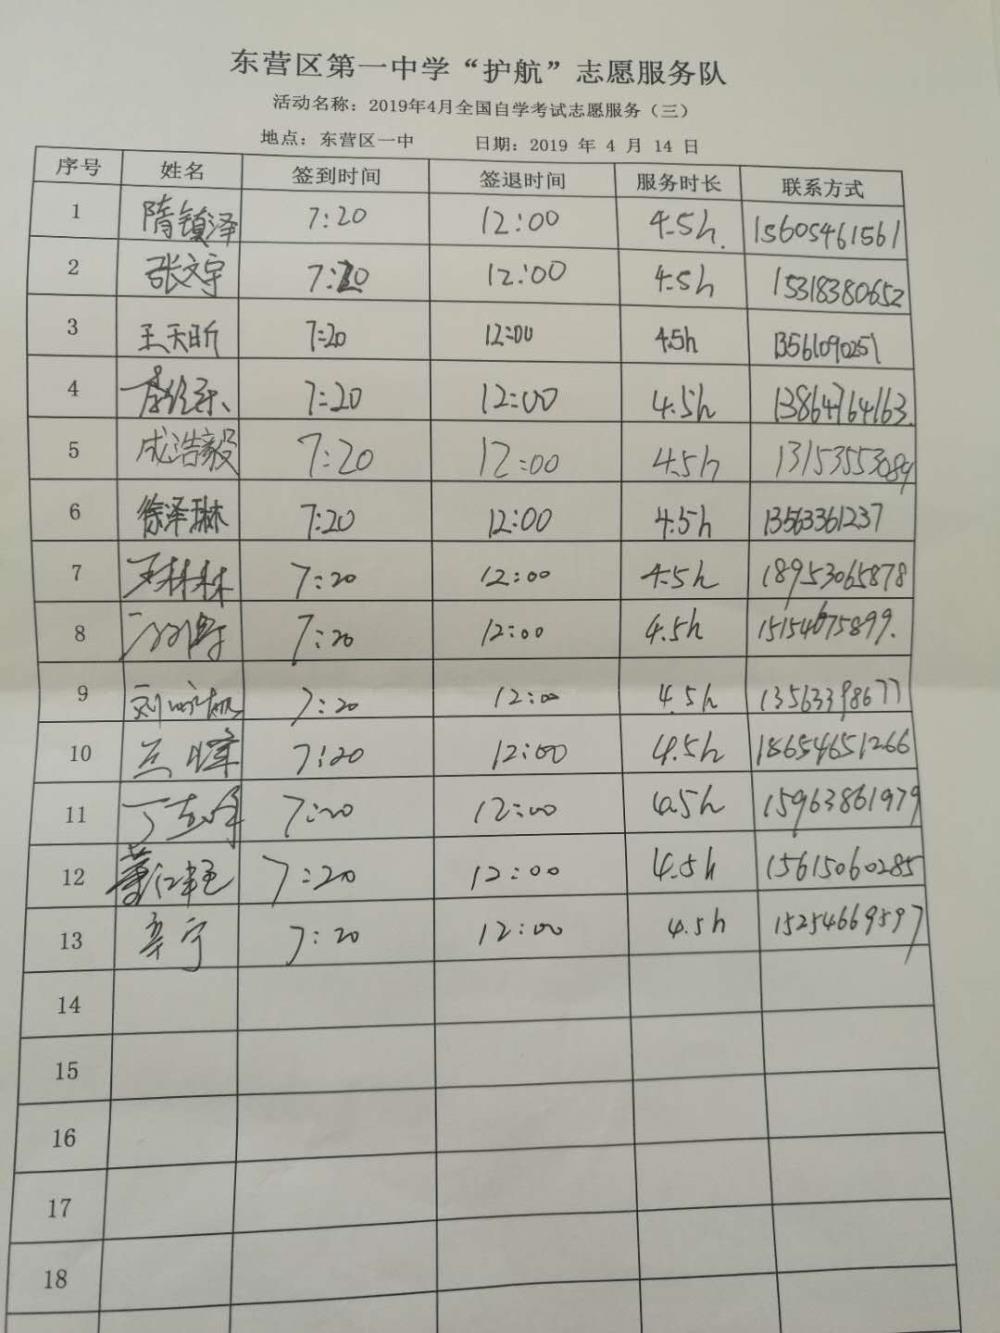 东营区第一中学“护航”志愿服务队
活动名称：2019年4月全国自学考试志愿服务（三）
地点：东营区一中 日期：2019 年 4 月 14 日
序号 姓名 签到时间 签退时间 服务时长 联系方式
1 隋镇泽 7:20 12:00 4.5h. 15605461561
2 张文宇 7:20 12:00 4.5h 15318380652
3 王天昕 7:20 12:00 4.5h 13561090251
4 7:20 12:00 4.5h 13864764163.
5 成浩毅 7:20 12:00 4.5h 13153553089
6 徐泽琳 7:20 12:00 4.5h 13563361237
7 王林林 7:20 12:00 4.5h 18953065878
8 7:20 12:00 4.5h 15154675899.
9 7:20 12:00 4.5h 13563398677
10 7:20 12:00 4.5h 18654651266
11 7:20 12:00 4.5h 15963861979
12 7:20 12:00 4.5h 15615060285
13 辛宁 7:20 12:00 4.5h 15254669597
14
15
16
17
18